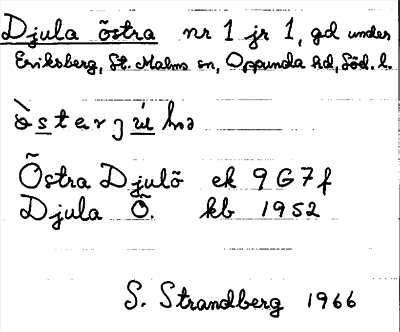 Djula östra nr 1 jr 1, gd under
Eriksberg, St. Malms sn, Oppunda hd, Söd. l.
ö̀sterjúhə
Östra Djulö ek 9G7f
Djula Ö. kb 1952
S. Strandberg 1966